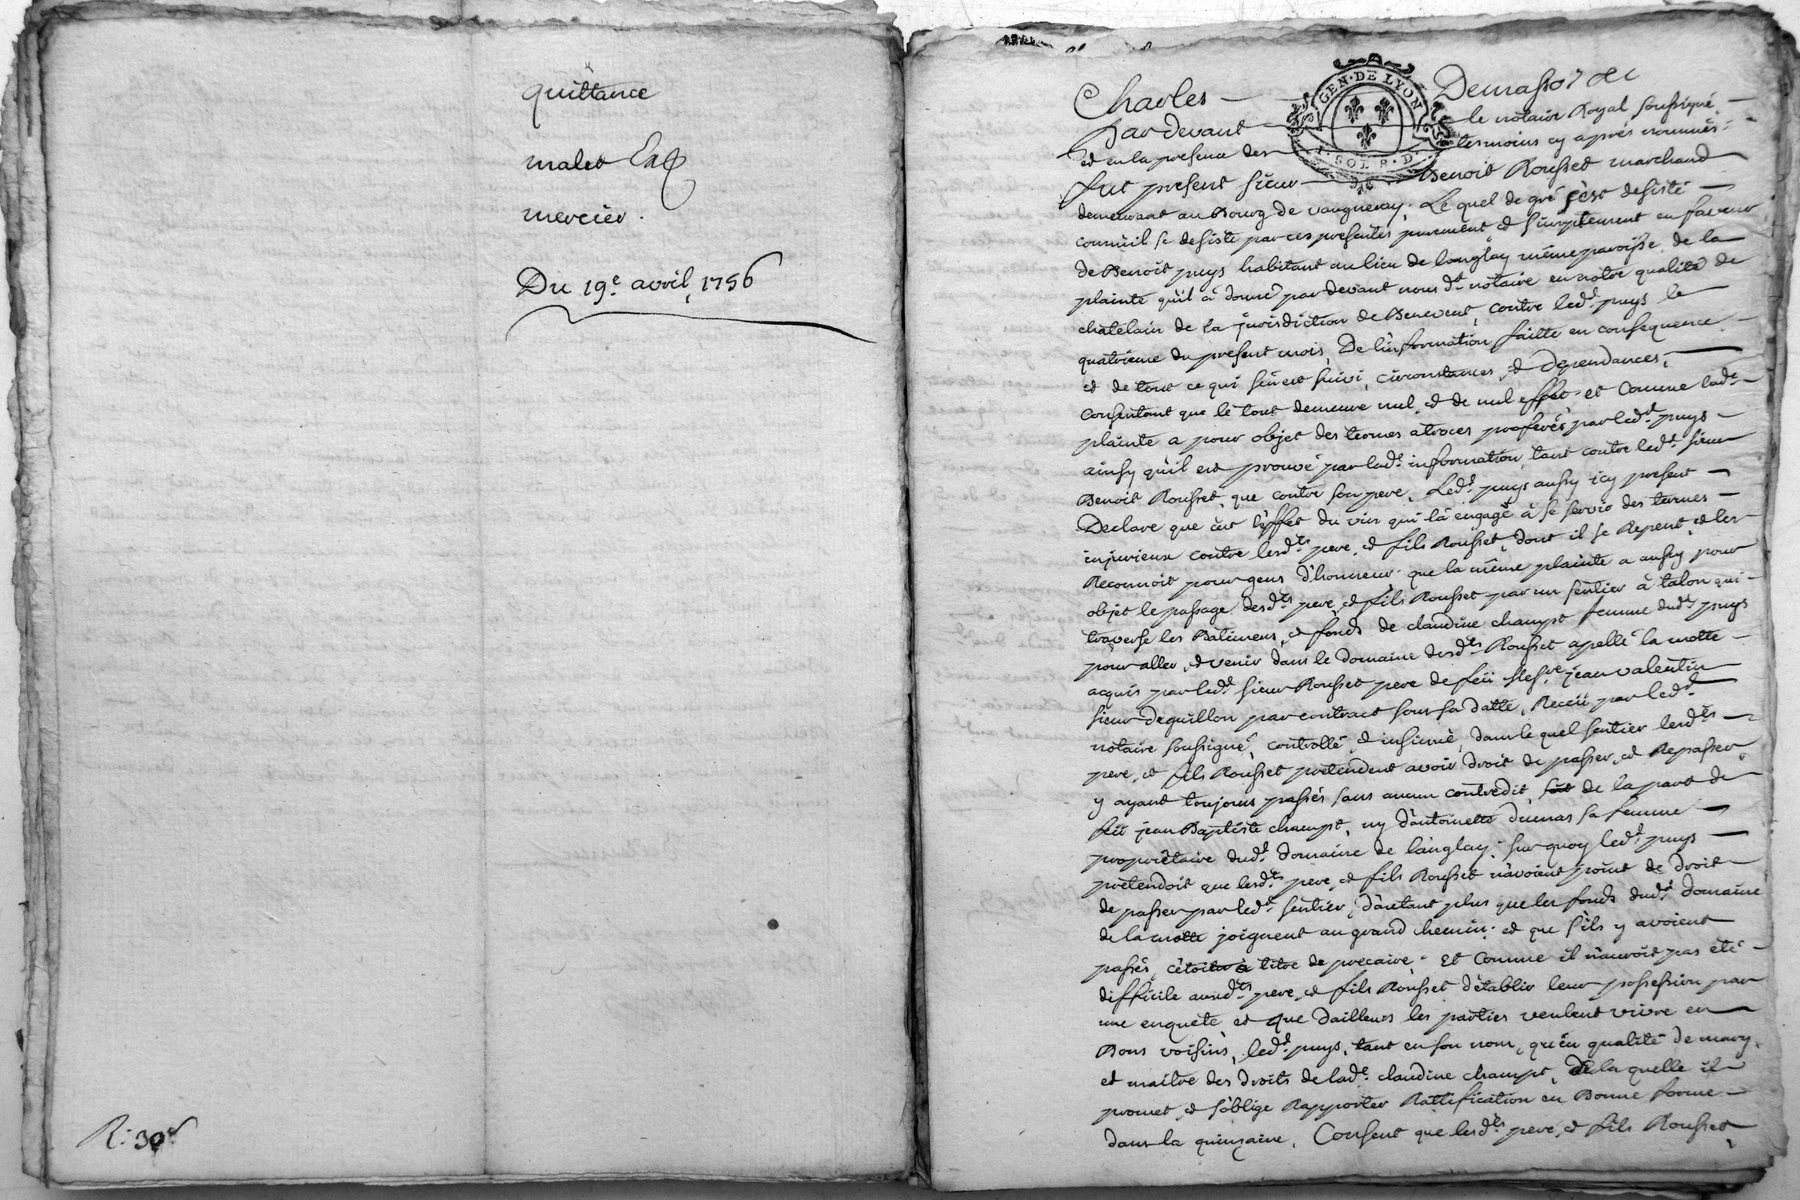 quittance
malet Exp
mercier.
Du 19e. avril, 1756
R: 30s
GEN. DE LYON
SOL 8. D.
Charles Demassot de
Pardevant le notaire Royal, soussigné
et en la presence des tesmoins cy aprés nommés:
fut present sieur Benoit Rousset marchand
demeurant au Bourg de vaugneray, Le quel de gré s'est desisté
comme il se desiste par ces presentes purement, et simplement en faveur
de Benoit puys habitant au lieu de Longlay même paroisse, de la
plainte qu'il a donné par devant nous dt. notaire en notre qualité de
chatelain de la jurisdiction de Benevent, contre ledt. puys le
quatrieme du present mois, De l'information faitte en consequence
et de tout ce qui s'en est suivi, circonstances, et Dependances,
Consentant que le tout demeure nul, et de nul effet. et Comme lade.
plainte a pour objet des termes atroces proferés par ledt. puys
ainsy qu'il est prouvé par lade. information, tant contre ledt. sieur
Benoit Rousset, que contre son pere, Ledt. puys aussy icy present
Declare que c'est l'effet du vin qui l'a engagé à se servir des termes
injurieux contre lesdts. pere, et fils Rousset, dont il se Repent, et les
Reconnoit pour gens d'honneur. que la même plainte a aussy pour
objet le passage desdts. pere, et fils Rousset par un sentier à talon qui
traverse les Batimens, et fonds de claudine champt femme dudt. puys
pour aller, et venir dans le domaine desdts. Rousset apellé la motte
acquis par ledt. sieur Rousset pere de feü Mesre. jean valentin
sieur dequillon par contract sous sa datte, Receü par ledt.
notaire soussigné, controllé, et insinué, dans le quel sentier lesdts.
pere, et fils Rousset pretendent avoir droit de passer, et Repasser,
y ayant toujours passés sans aucun contredit, soit de la part de
feü jean Baptiste champt, ny d'antoinette dumas sa femme
proprietaire dudt. domaine de l'anglay; sur quoy ledt. puys
pretendoit que lesdts. pere, et fils Rousset n'avoient point de droit
de passer par ledt. sentier, d'autant plus que les fonds dudt. domaine
de la motte joignent au grand chemin; et que s'ils y avoient
passés, c'étoit à titre de precaire; Et Comme il n'auroit pas eté
difficile auxdts. pere, et fils Rousset d'établir leur possession par
une enquête, et que d'ailleurs les parties veulent vivre en
Bons voisins, ledt. puys, tant en son nom, qu'en qualité de mary,
et maitre des droits de lade. claudine champt, de la quelle il
promet, et s'oblige Rapporter Rattification en Bonne forme
dans la quinzaine, Consent que lesdts. pere, et fils Rousset,